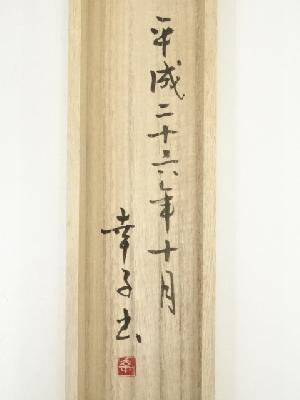 平成二十六年十月
幸子書
幸